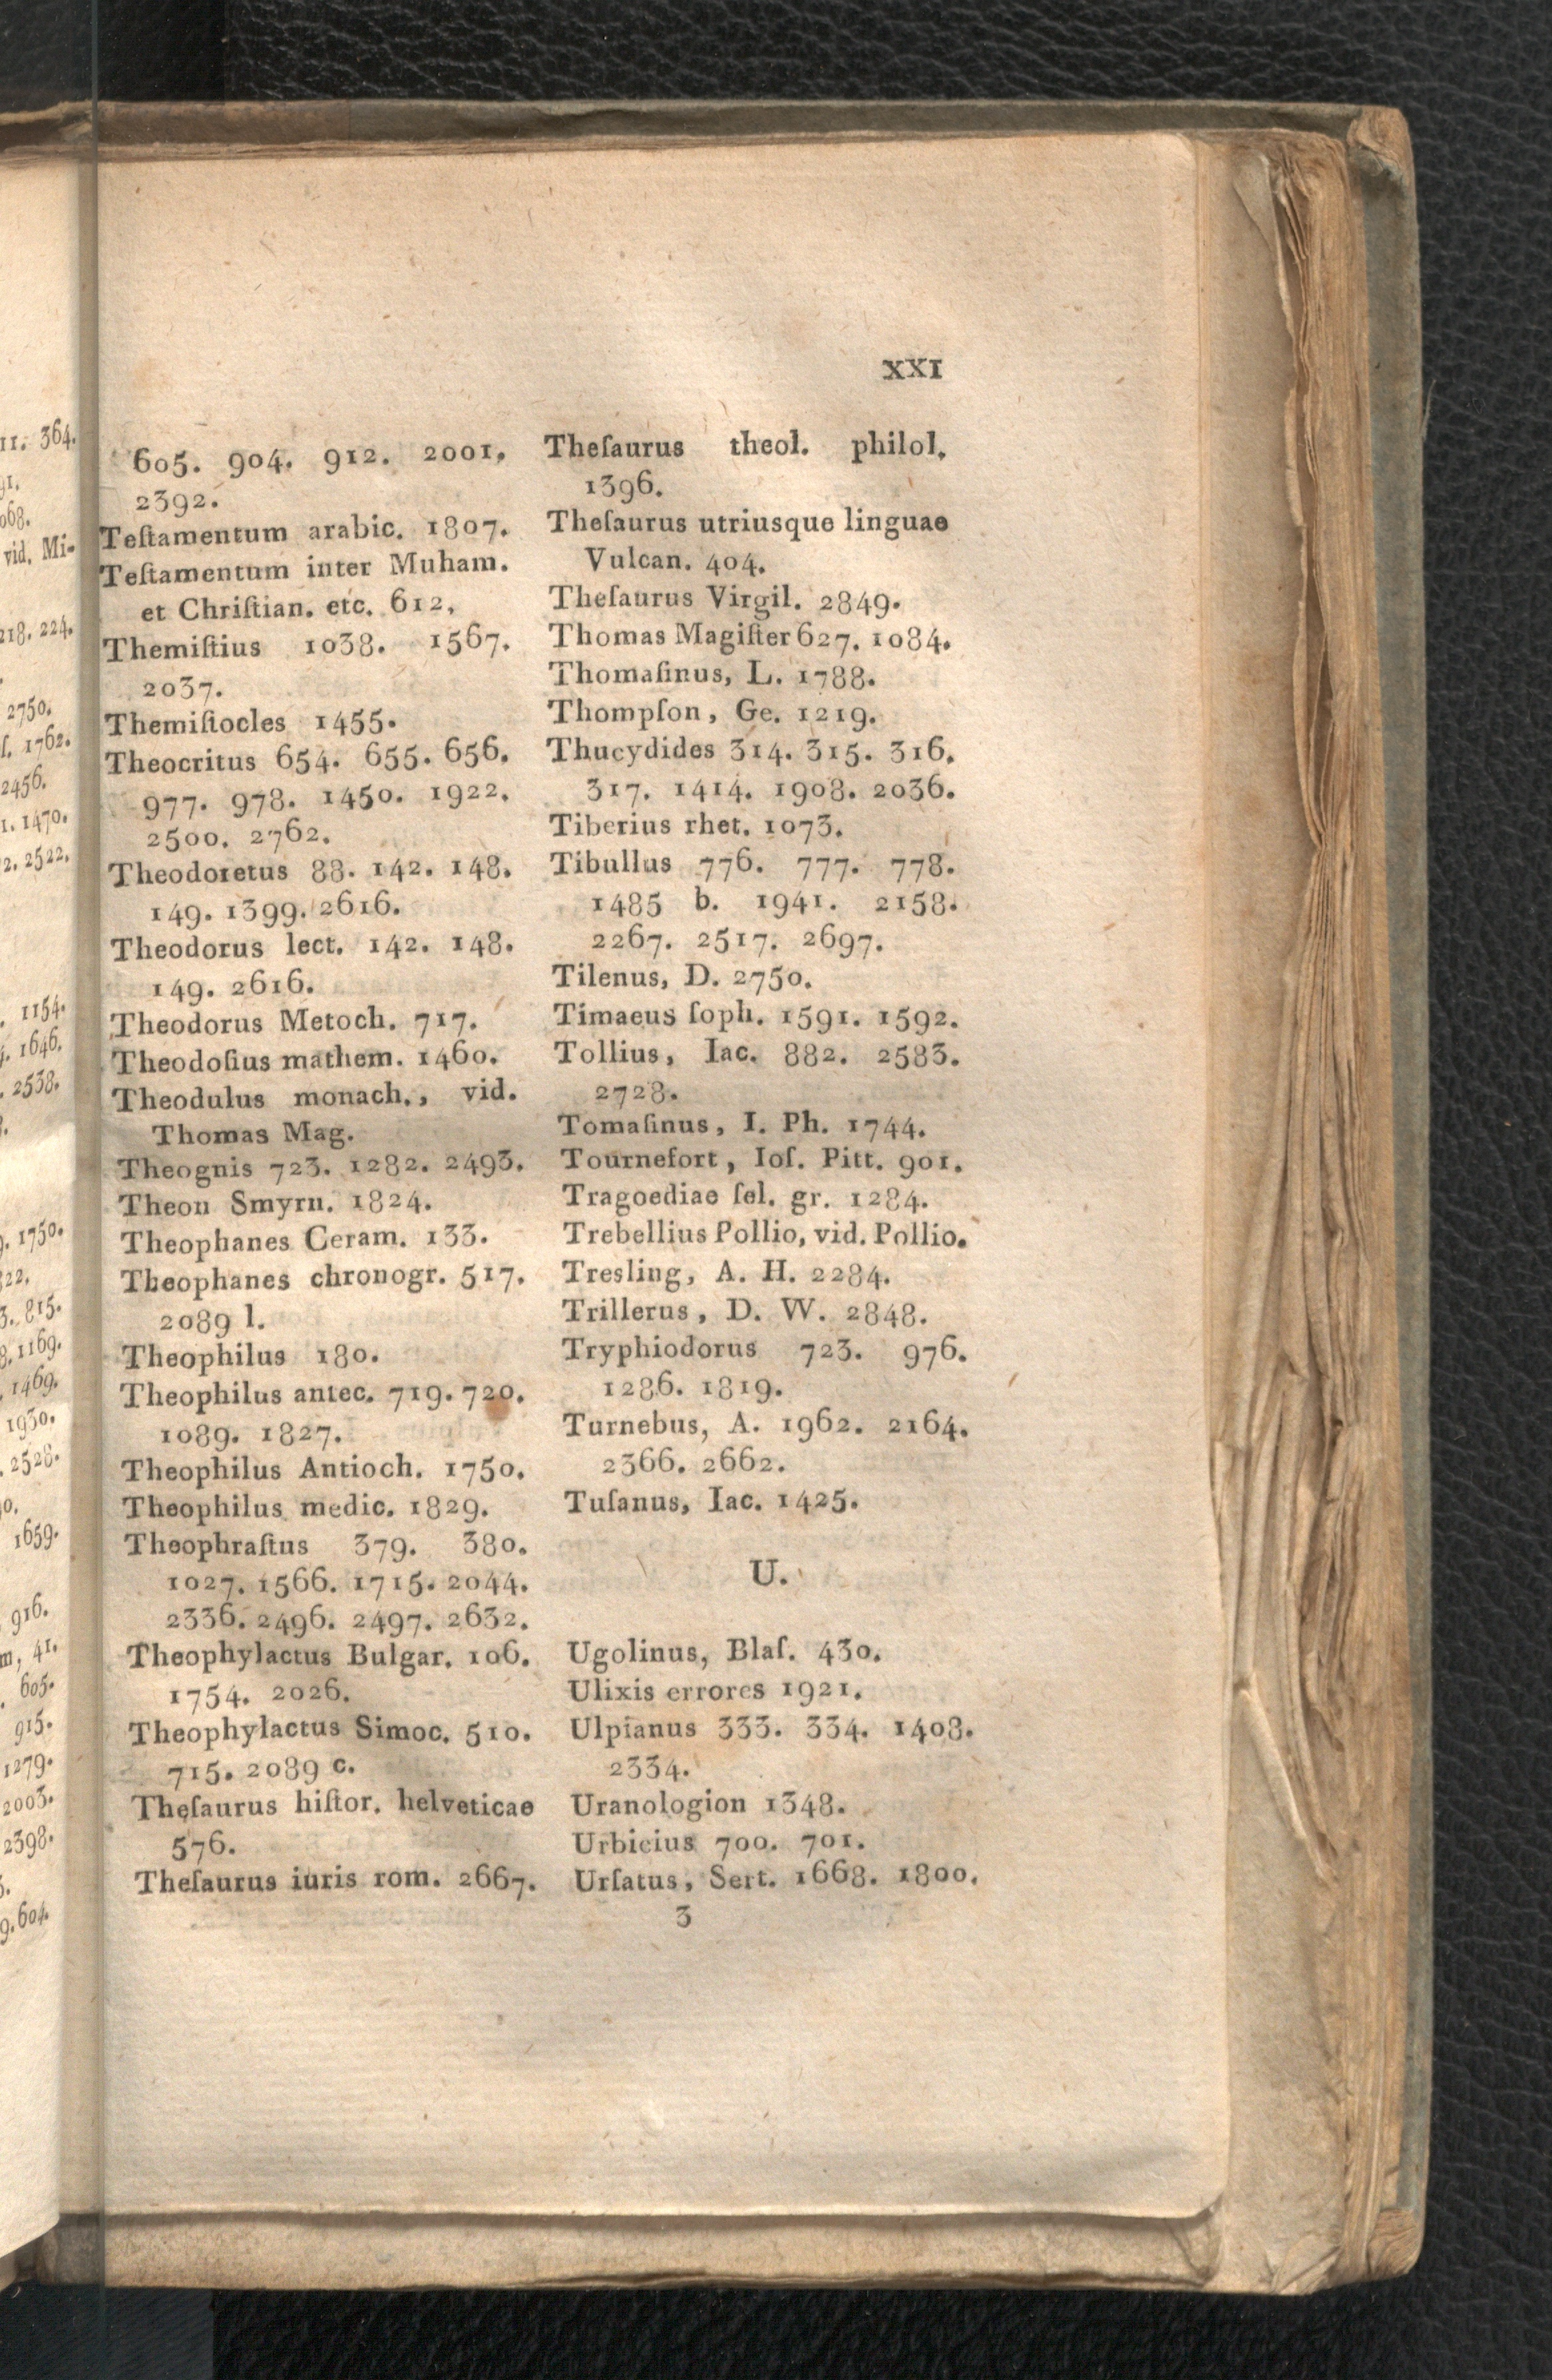 XXI
605. 904. 912. 2001.
2392.
Teſtamentum arabic. 1807.
Teſtamentum inter Muham.
et Chriſtian. etc. 612.
Themiſtius 1038. 1567.
2037.
Themiſtocles 1455.
Theocritus 654. 655. 656.
977. 978. 1450. 1922.
2500. 2762.
Theodoretus 88. 142. 148.
149. 1399. 2616.
Theodorus lect. 142. 148.
149. 2616.
Theodorus Metoch. 717.
Theodoſius mathem. 1460.
Theodulus monach., vid.
Thomas Mag.
Theognis 723. 1282. 2493.
Theon Smyrn. 1824.
Theophanes Ceram. 133.
Theophanes chronogr. 517.
2089 l.
Theophilus 180.
Theophilus antec. 719. 720.
1089. 1827.
Theophilus Antioch. 1750.
Theophilus medic. 1829.
Theophraſtus 379. 380.
1027. 1566. 1715. 2044.
2336. 2496. 2497. 2632.
Theophylactus Bulgar. 106.
1754. 2026.
Theophylactus Simoc. 510.
715. 2089 c.
Theſaurus hiſtor. helveticae
576.
Theſaurus iuris rom. 2667.
Theſaurus theol. philol.
1396.
Theſaurus utriusque linguae
Vulcan. 404.
Theſaurus Virgil. 2849.
Thomas Magiſter 627. 1084.
Thomaſinus, L. 1788.
Thompſon, Ge. 1219.
Thucydides 314. 315. 316.
317. 1414. 1908. 2036.
Tiberius rhet. 1073.
Tibullus 776. 777. 778.
1485 b. 1941. 2158.
2267. 2517. 2697.
Tilenus, D. 2750.
Timaeus ſoph. 1591. 1592.
Tollius, Iac. 882. 2583.
2728.
Tomaſinus, I. Ph. 1744.
Tournefort, Ioſ. Pitt. 901.
Tragoediae ſel. gr. 1284.
Trebellius Pollio, vid. Pollio.
Tresling, A. H. 2284.
Trillerus, D. W. 2848.
Tryphiodorus 723. 976.
1286. 1819.
Turnebus, A. 1962. 2164.
2366. 2662.
Tuſanus, Iac. 1425.
U.
Ugolinus, Blaſ. 430.
Ulixis errores 1921.
Ulpianus 333. 334. 1408.
2334.
Uranologion 1348.
Urbicius 700. 701.
Urſatus, Sert. 1668. 1800.
3